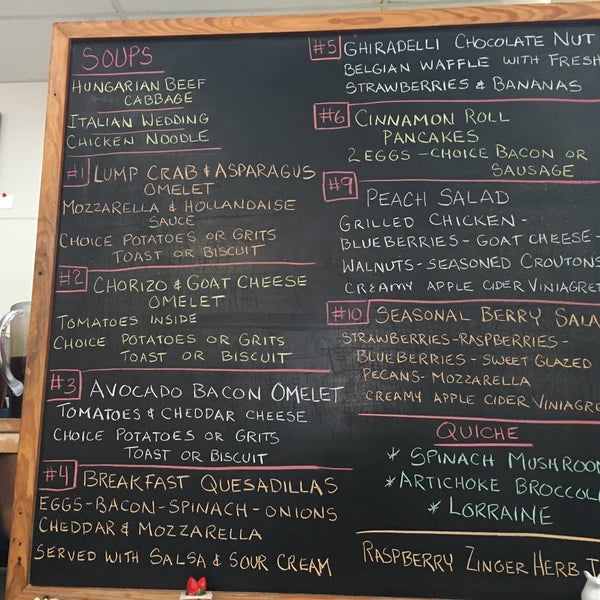 SOUPS
HUNGARIAN BEEF
CABBAGE
ITALIAN WEDDING
CHICKEN NOODLE
#1 LUMP CRAB & ASPARAGUS
OMELET
MOZZARELLA & HOLLANDAISE
SAUCE
CHOICE POTATOES OR GRITS
TOAST OR BISCUIT
#2 CHORIZO & GOAT CHEESE
OMELET
TOMATOES INSIDE
CHOICE POTATOES OR GRITS
TOAST OR BISCUIT
#3 AVOCADO BACON OMELET
TOMATOES & CHEDDAR CHEESE
CHOICE POTATOES OR GRITS
TOAST OR BISCUIT
#4 BREAKFAST QUESADILLAS
EGGS-BACON-SPINACH-ONIONS
CHEDDAR & MOZZARELLA
SERVED WITH SALSA & SOUR CREAM
#5 GHIRADELLI CHOCOLATE NUT
BELGIAN WAFFLE WITH FRESH
STRAWBERRIES & BANANAS
#6 CINNAMON ROLL
PANCAKES
2 EGGS - CHOICE BACON OR
SAUSAGE
#9 PEACH SALAD
GRILLED CHICKEN -
BLUEBERRIES - GOAT CHEESE -
WALNUTS - SEASONED CROUTONS
CREAMY APPLE CIDER VINIAGRET
#10 SEASONAL BERRY SALA
STRAWBERRIES-RASPBERRIES-
BLUEBERRIES - SWEET GLAZED
PECANS - MOZZARELLA
CREAMY APPLE CIDER VINIAGRE
QUICHE
* SPINACH MUSHROOM
* ARTICHOKE BROCCOLI
* LORRAINE
RASPBERRY ZINGER HERB T